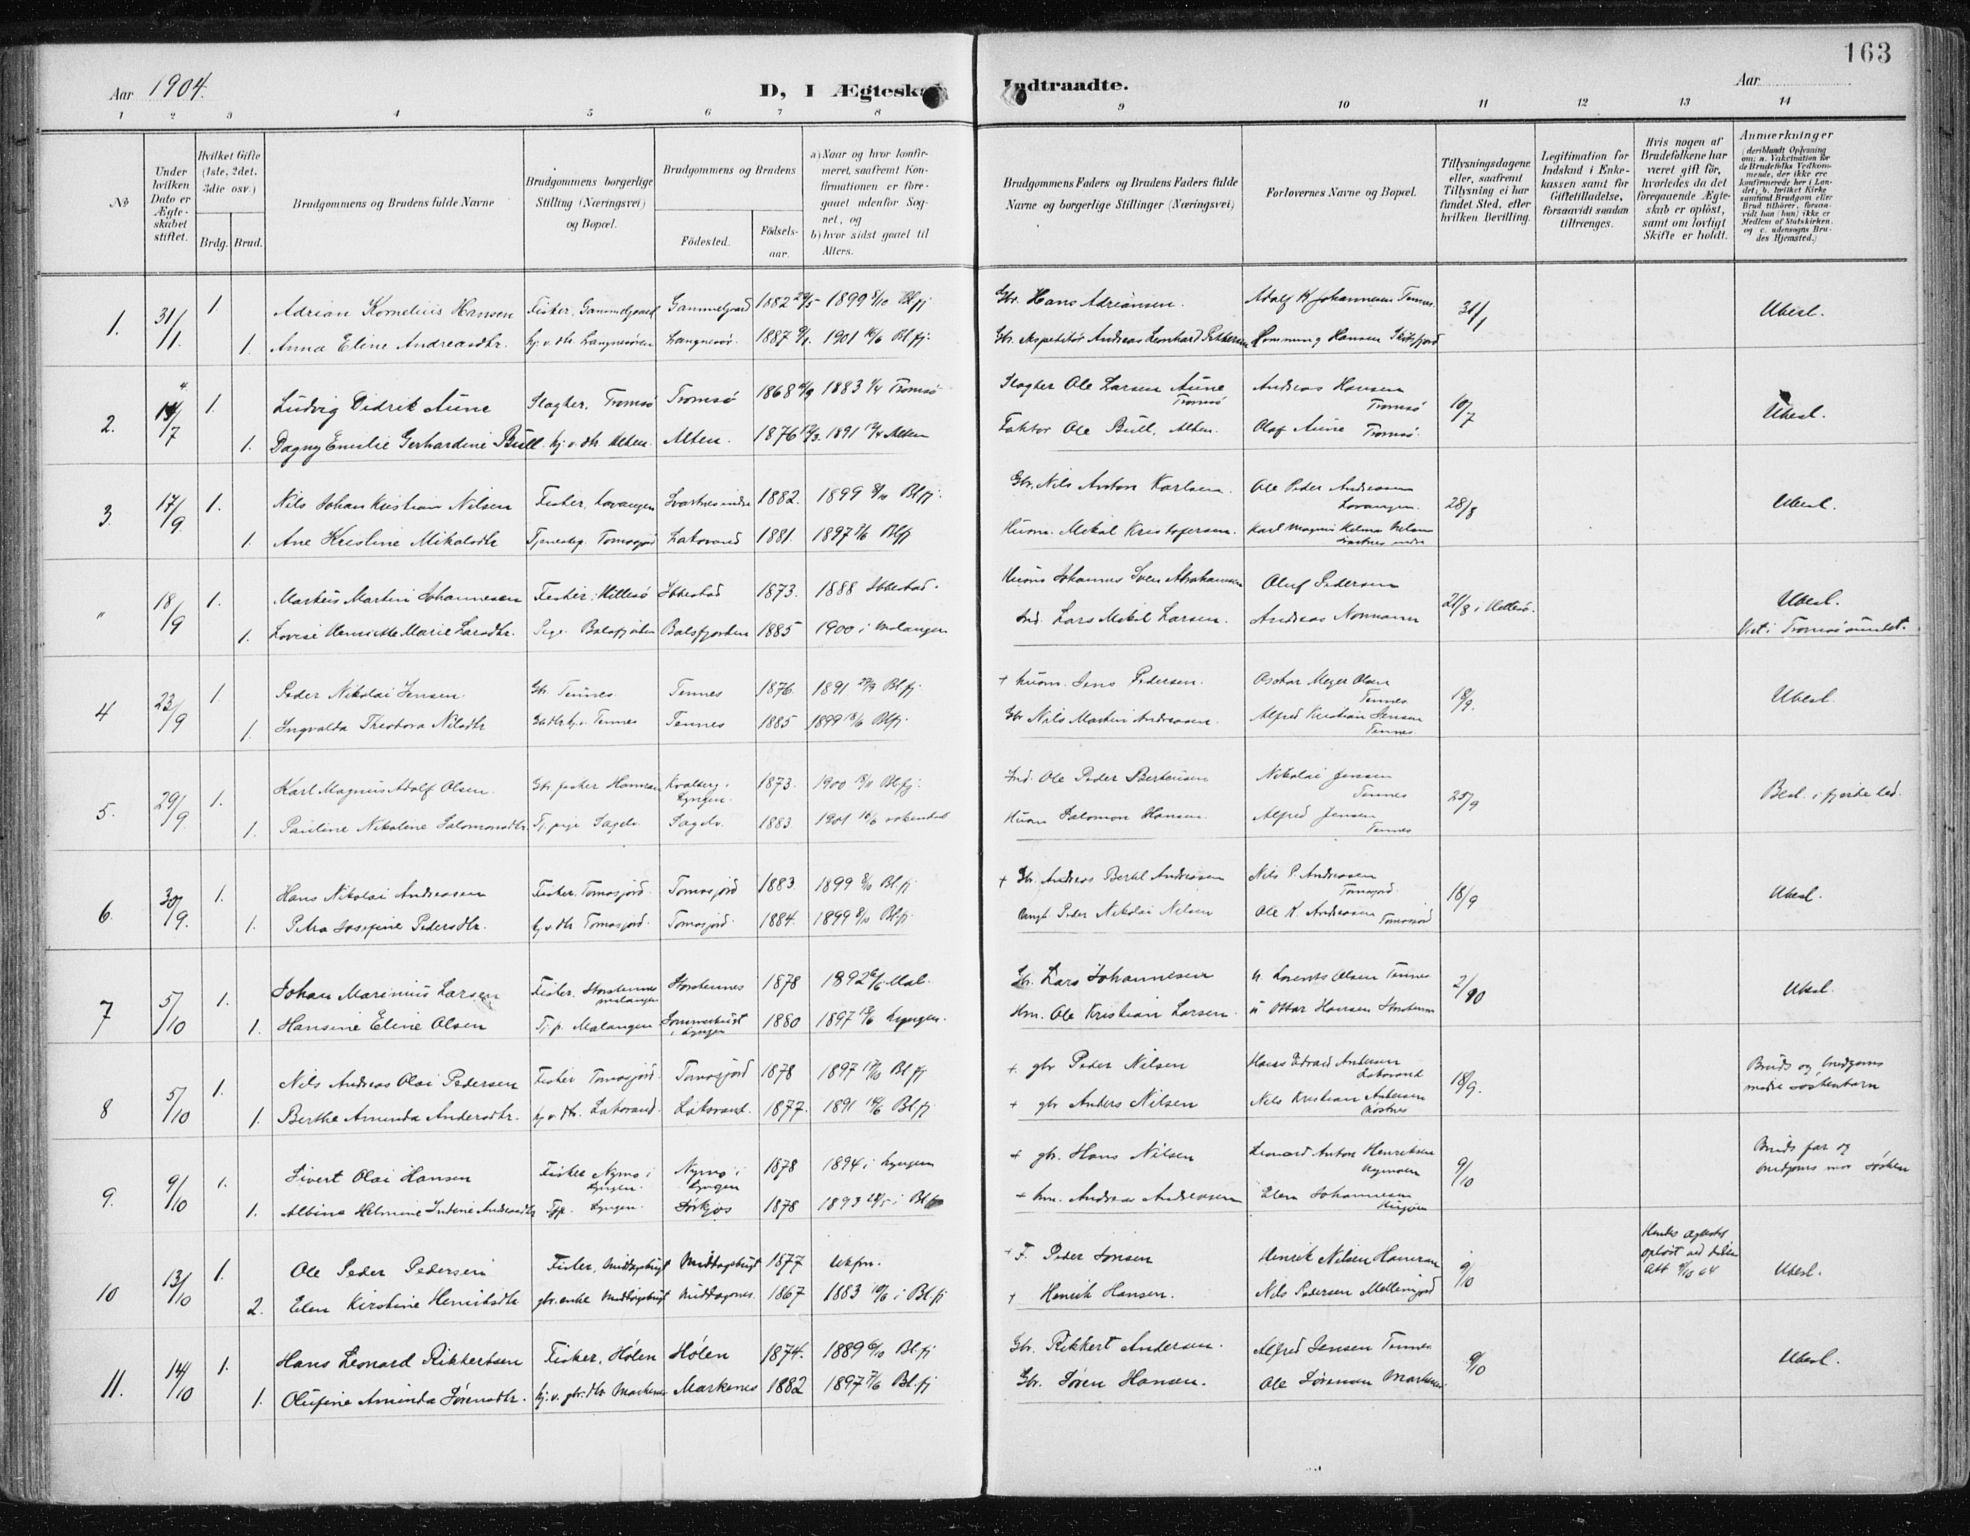 163
Aar 1904.
D, I Ægteskab Indtraadte.
Aar
1 2 3 4 5 6 7 8 9 10 11 12 13 14
No
Under hvilken Dato er Ægteskabet stiftet.
Hvilket Gifte (1ste, 2det, 3die osv.)
Brdg. Brud.
Brudgommens og Brudens fulde Navne
Brudgommens borgerlige Stilling (Næringsvei) og Bopæl.
Brudgommens og Brudens
Fødested. Fødselsaar.
a) Naar og hvor konfirmeret, saafremt Konfirmationen er foregaaet udenfor Sognet, og
b) hvor sidst gaaet til Alters.
Brudgommens Faders og Brudens Faders fulde Navne og borgerlige Stillinger (Næringsvei)
Forlovernes Navne og Bopæl.
Tillysningsdagene eller, saafremt Tillysning ei har fundet Sted, efter hvilken Bevilling.
Legitimation for Indskud i Enkekassen samt for Giftetilladelse, forsaavidt saadan tiltrænges.
Hvis nogen af Brudefolkene har været gift før, hvorledes da det foregaaende Ægteskab er opløst, samt om lovligt Skifte er holdt.
Anmærkninger
(deriblandt Oplysning om: a. Vakcination for de Brudefolks Vedkommende, der ikke ere konfirmerede her i Landet; b. hvilket Kirkesamfund Brudgom eller Brud tilhører, forsaavidt han (hun) ikke er Medlem af Statskirken, og c. udensogns Brudes Hjemsted.)
1. 31/1. 1 Adrian Kornelius Hansen Fisker, Gammelgaard Gammelgaard 1882 1899 8/10 Blfj Gbr. Hans Adriansen. Adolf K Johannesen Tennes. 31/1 Ubesl.
1. Anna Eline Andreasdtr. Langnesøren Langnesør. 1887 1901 16/6 Bl.fj. Andreas Leonhard Pettersen Hemming Hansen
2. /7 1. Ludvig Didrik Aune Slagter, Tromsø Tromsø 1868 1883 Tromsø Slagter Ole Larsen Aune Tromsø Andreas Hansen Tromsø 10/7 Ubesl.
1. Dagny Emilie Gerhardine Bull hj.v.dtr. Alten. Alten. 1876 1891 Alten Faktor Ole Bull, Alten. Olaf Aune Tromsø.
3. 17/9 1. Nils Johan Kristian Nilsen Fisker, Lavangen Svartnes indre 1882. 1899 8/10 Bl.fj. Gbr. Nils Anton Karlsen. Ole Peder Andreasen Lavangen. 28/8 Ubesl.
1. Ane Kristine Mikalsdtr Tomasjord Lakovand 1881. 1897 Blfj Husm. Mikal Kristofersen. Karl Magnus Nilsen Svartnes indre
" 18/9 1. Markus Martin Johannesen Fisker. Hillesø Ibbestad 1873. 1888 Ibbestad. Johannes Sven Abrahamsen Oluf Pedersen 21/8 i Hillesø. Ubesl.
1. Lovise Henriette Marie Larsdtr. Pige. Balsfjorden Balsfjorden 1885 1900 i Malangen Ind. Lars Mikal Larsen. Andreas Normann Viet i Tromsøsundet.
4 23/9 1 Peder Nikolai Jensen Gbr. Tennes. Tennes 1876. 1891 27/9 Bl.fj. + husm. Jens Pedersen. Osckar Meyer Olsen Tennes 18/9. Ubesl.
1. Ingvalda Theodora Nilsdtr Tennes Tennes 1885 1899 Bl.fj. Gbr Nils Martin Andreasen. Alfred Kristian Jensen Tennes.
5. 29/9 1. Karl Magnus Adolf Olsen. Gbr. fisker Hamran Kvalberg i Lyngen. 1873. 1900 Bl.fj. Ind. Ole Peder Bertensen Nikolai Jensen Tennes 25/9 Besl. i fjerde led.
1. Pauline Nikoline Salomonsdtr. Tj. pige Sagelv. Sagelv. 1883 1901 Husm Salomon Hansen. Alfred Jensen Tennes
6. 30/9. 1. Hans Nikolai Andreasen Fisker. Tomasjord. Tomasjord 1883. 1899 8/10 Bl.fj + Gbr. Andreas Bertel Andreasen Nils P. Andreasen Tomasjord. 18/9 Ubesl.
1. Petra Josefine Pedersdtr. hj.v.dtr Tomasjord. Tomasjord. 1884. 1899 8/10 Bl.fj. Peder Nikolai Nilsen Ole K. Andreasen Tomasjord
7 5/10 1. Johan Marinius Larsen Fisker, Storstennes malangen Storstennes 1878 1892 Mal. Gbr. Lars Johannesen Lorents Olsen Tennes 2/10 Ubesl.
1. Hansine Eline Olsen Tj. p. Malangen Sommerbugt i Lyngen 1880 1897 Lyngen. Hm. Ole Kristian Larsen. Ottar Hansen Storstennes
8 5/10 1. Nils Andreas Olai Pedersen Fisker Tomasjord. Tomasjord 1878 1897 17/10 Bl.fj + gbr Peder Nilsen Hans Edvard Andersen Lakovand 18/9. Bruds og brudgoms mødre søskenbarn
1. Berthe Aminda Andersdtr. hj.v.dtr. Lakovand. Lakovand. 1877. 1891 14/6 Bl.fj + gbr Anders Nilsen Nils Kristian Andersen
9. 9/10 1. Sivert Olai Hansen Fisker Nymo i Lyngen. Nymo i Lyngen 1878 1894 i Lyngen + gbr. Hans Nilsen Leonard Anton Henriksen Nymoen 9/10 Bruds far og brudgoms mor søsken
1. Albine Helmine Indine Andreasdtr Lyngen. Sørkjos 1878 1893 i Bl.fj + hm. Andreas Andreasen Johannesen
10 13/10 1. Ole Peder Pedersen Fisker, Middagsbugt Middagsbugt 1877 Ukfm. + F. Peder Jonsen Henrik Nilsen Hamran 9/10 Ubesl.
2. Elen Kirstine Henriksdtr gbr. enke Middagsbugt Middagsnes. 1867 1883 i Bl.fj + Henrik Hansen. Nils Pedersen Mellemjord
11. 14/10 1. Hans Leonard Rikkertsen Fisker, Hølen Hølen 1874. 1889 6/10 Bl.fj Gbr. Rikkert Andersen. Alfred Jensen Tennes 9/10 Ubesl.
1. Olufine Aminda Sørensdtr. hj.v. gbr.dtr Markenes Markenes 1882 1897 Bl.fj Gbr. Søren Hansen. Ole Sørensen Markenes